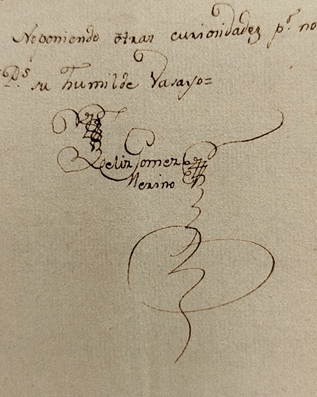 Neponiendo otras curiondades p.r no
D.s su humilde Vasayo=
Felix Gomez
Merino